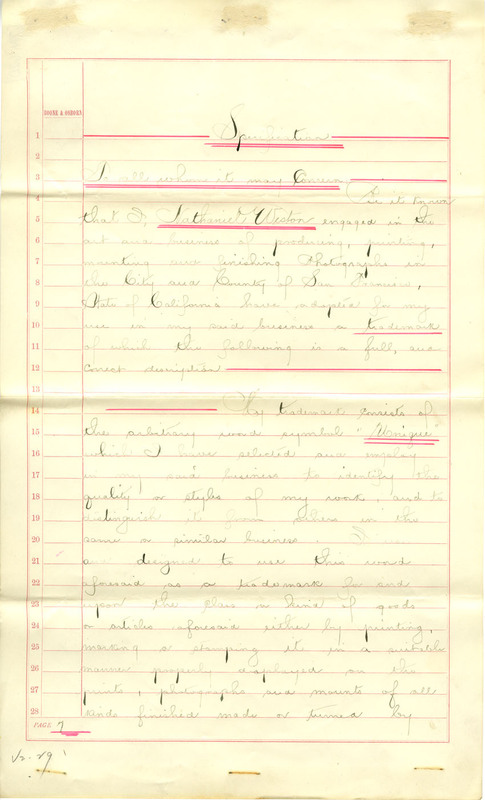 BOONE & OSBORN
1 Specification
2
3 To all whom it may Concern
4 Be it known
5 that I, Nathaniel Weston engaged in the
6 art and business of producing, printing,
7 mounting and finishing Photographs in
8 the City and County of San Francisco,
9 State of California have adopted for my
10 use in my said business a trademark
11 of which the following is a full, and
12 correct description
13
14 My trademark consists of
15 the arbitrary word symbol "Unique"
16 which I have selected and employ
17 in my said business to identify the
18 quality or styles of my work, and to
19 distinguish it from others in the
20 same or similar business.
21 and designed to use this word
22 aforesaid as a trademark for and
23 upon the class or kind of goods
24 or articles aforesaid either by printing,
25 marking or stamping it in a suitable
26 manner properly displayed on the
27 prints, photographs and mounts of all
28 kinds finished made or turned by
PAGE 7